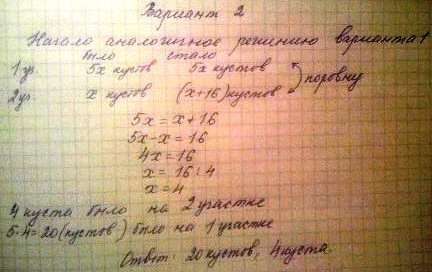 Вариант 2
Начало аналогичное решению варианта 1
было стало
1 уч. 5х кустов 5х кустов
2 уч. х кустов (х+16) кустов поровну
5х = х + 16
5х-х = 16
4х = 16
х = 16 : 4
х = 4
4 куста было на 2 участке
5·4=20(кустов) было на 1 участке
Ответ: 20 кустов, 4 куста.